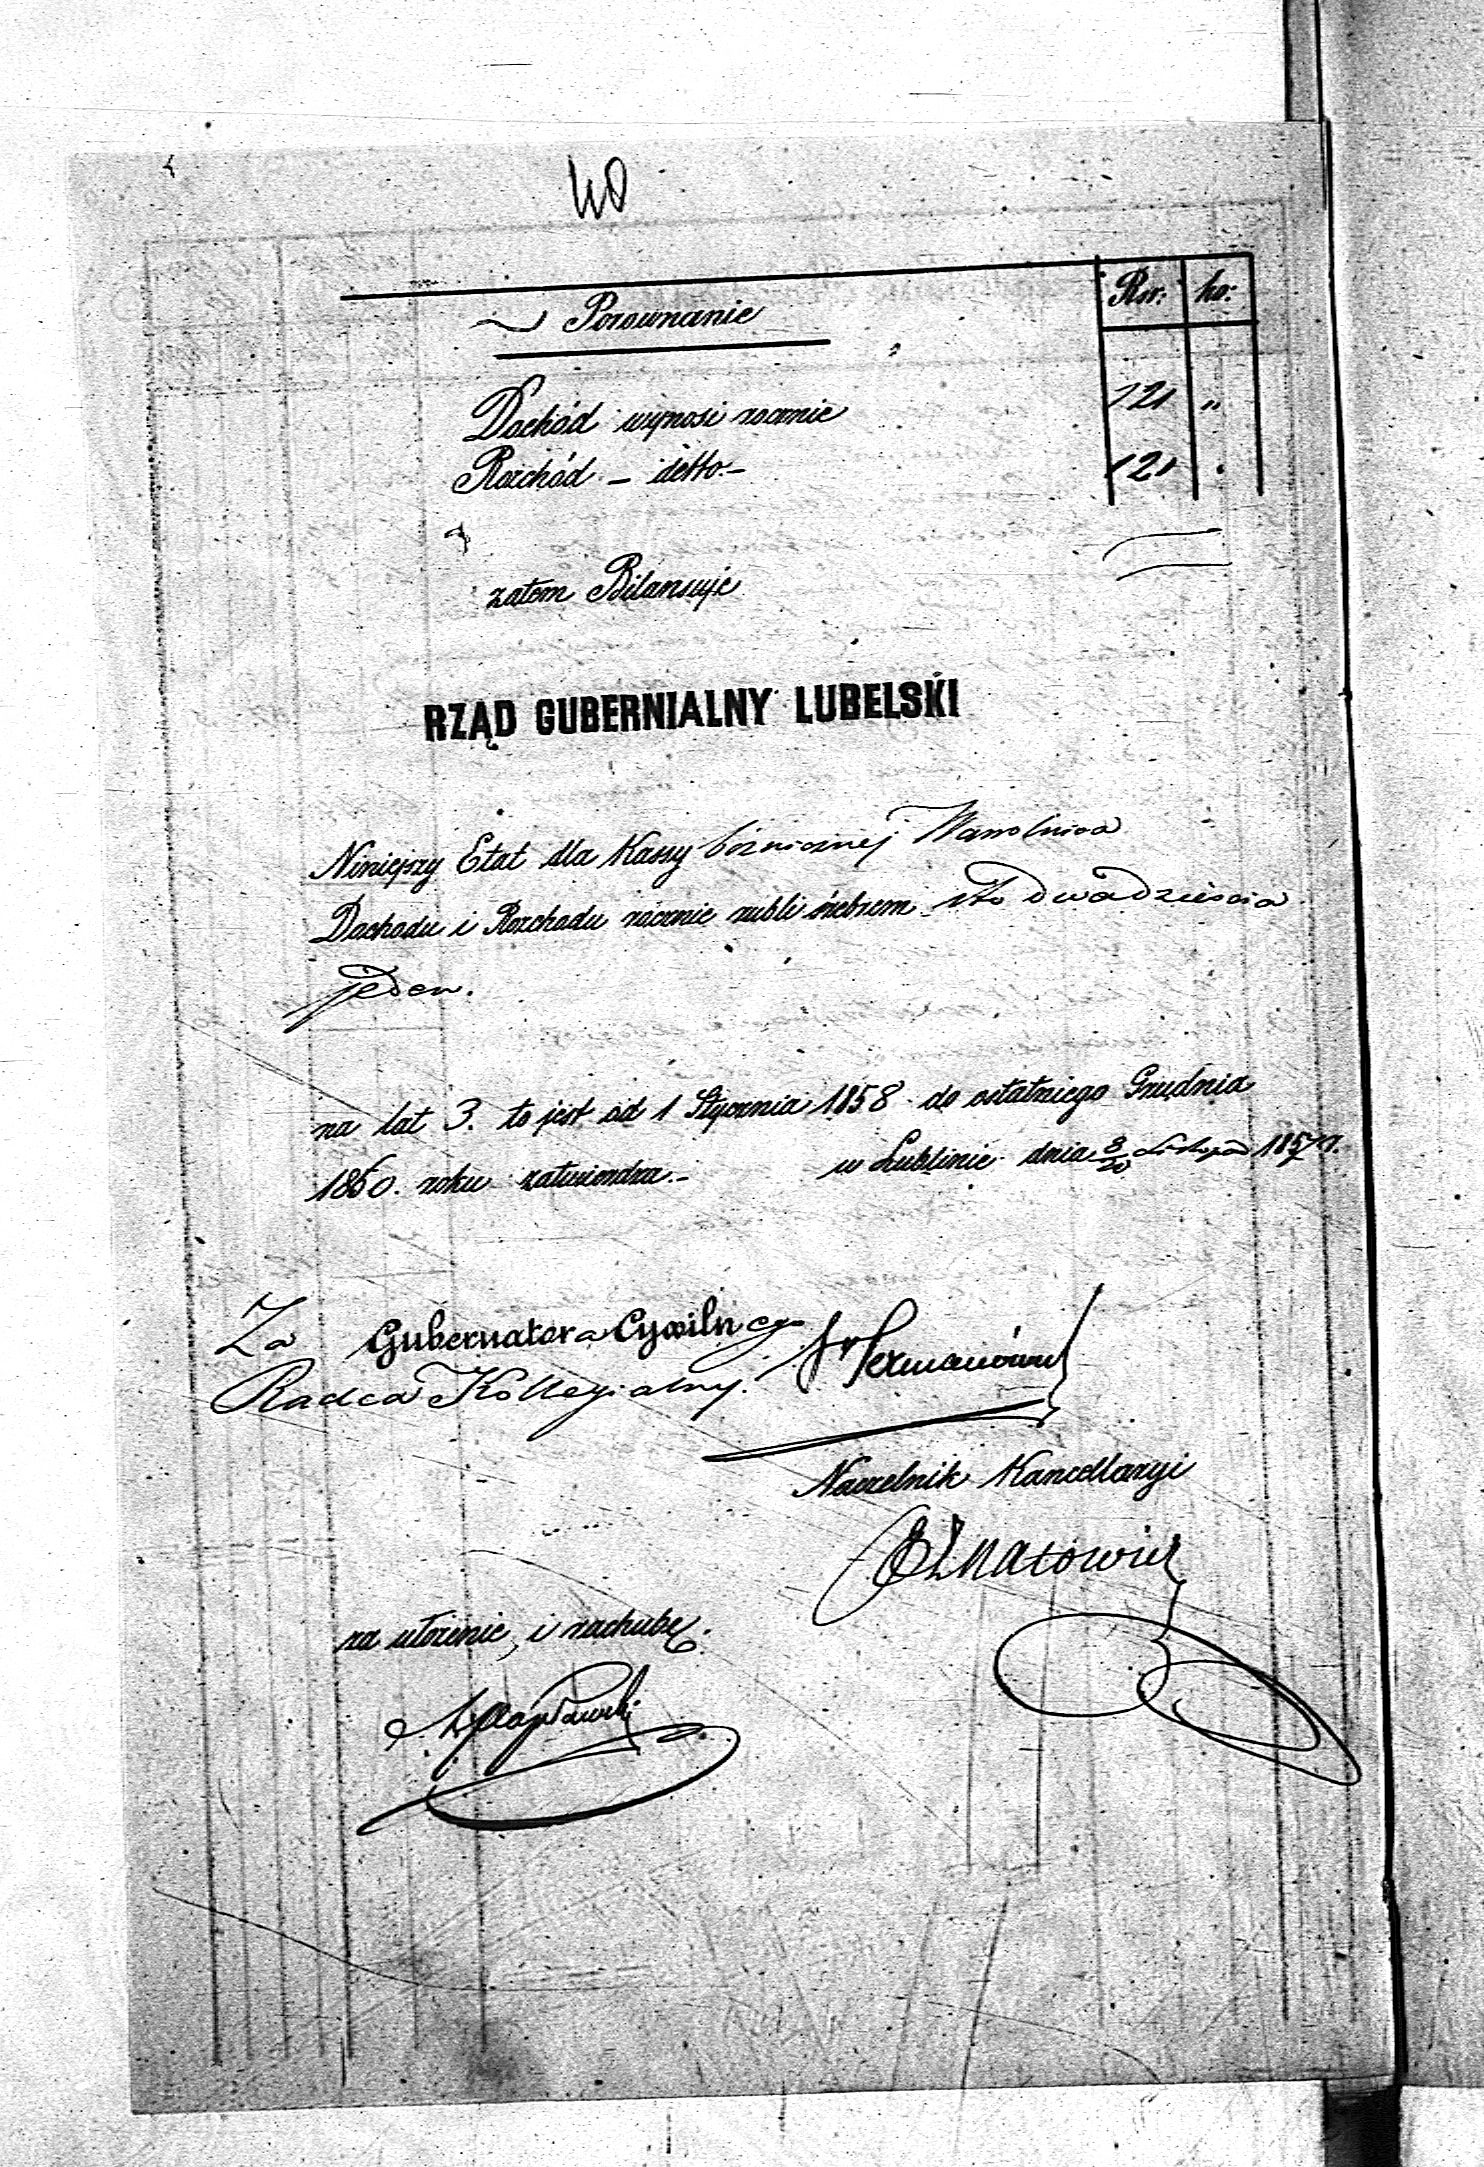 40
Porownanie Rsr: ko:
Dochód wynosi rocznie 121 "
Rozchód – detto – 121 "
zatem Bilansuje
RZĄD GUBERNIALNY LUBELSKI
Niniejszy Etat dla Kassy bóżnicznej Wawolnica
Dochodu i Rozchodu rocznie rubli srebrem sto dwadzieścia
jeden.
na lat 3. to jest od 1 Stycznia 1858 do ostatniego Grudnia
1860. roku zatwierdza.– w Lublinie dnia 8/20 Listopad 1857 r.
Za Gubernatora Cywilnego
Radca Kollegialny.
Naczelnik Kancellaryi
za ułożenie, i rachubę.